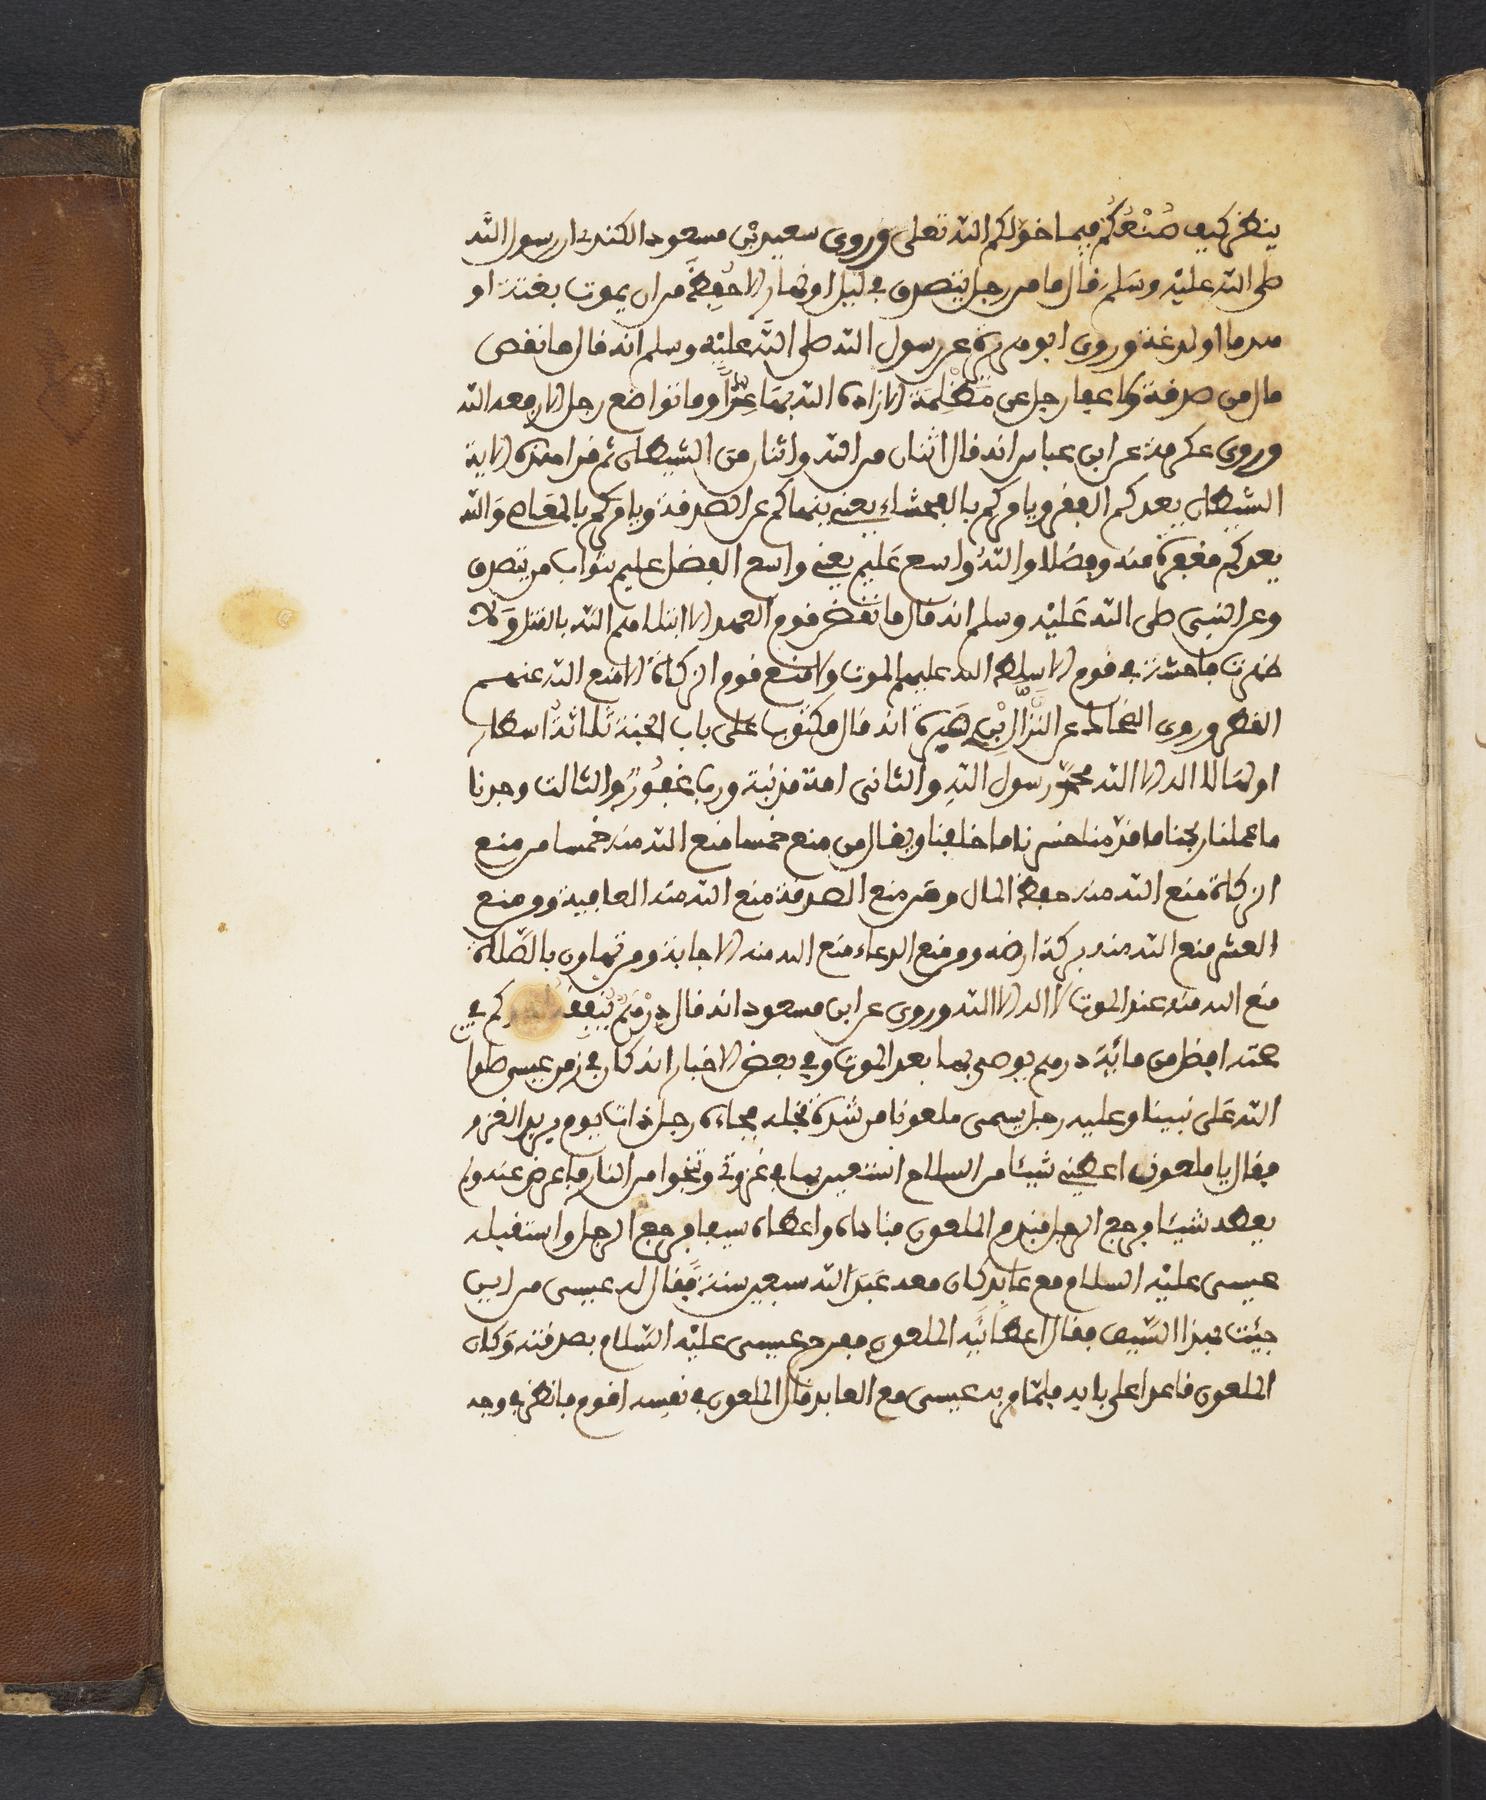 ينظر كيف صُنْعُكُم فيما خولكم الله تعلى وروى سعيد بن مسعود الكندى ان رسول الله
صلى الله عليه وسلم قال ما من رجل يتصدق في ليل او نهار الا حُفِظَ من ان يموت بغتة او
هدما او لدغة وروى ابو هريرة عن رسول الله صلى الله عليه وسلم انه قال ما نقص
مال من صدقة ولا عفا رجل عن مَظْلِمَة الا زاده الله بها عزاً وما تواضع رجل الا رفعه الله
وروى عكرمة عن ابن عباس انه قال اثنان من الله واثنان من الشيطان ثم قرا هذه الاية
الشيطان يعدكم الفقر ويامركم بالفحشاء يعني ينهاكم عن الصدقة ويامركم بالمعاصي والله
يعدكم مغفرة منه وفضلا والله واسع عليم يعني واسع الفضل عليم بثواب من يتصدق
وعن النبي صلى الله عليه وسلم انه قال ما نقض قوم العهد الا ابتلاهم الله بالقتل ولا
ظهرت فاحشة في قوم الا سلط الله عليهم الموت ولا منع قوم الزكاة الا منع الله عنهم
القطر وروى الضحاك عن النزّال بن سبرة انه قال مكتوب على باب الجنة ثلاثة اسطار
اولها لا اله الا الله محمد رسول الله والثاني امة مذنبة ورب غفُورٌ والثالث وجدنا
ما عملنا ربحنا ما قدّمنا خسرنا ما خلفنا ويقال من منع خمسا منع الله منه خمسا من منع
الزكاة منع الله منه حفظ المال ومن منع الصدقة منع الله منه العافية ومن منع
العشر منع الله منه بركة ارضه ومن منع الدعاء منع الله منه الاجابة ومن تهاون بالصّلاة
منع الله منه عند الموت لا اله الا الله وروى عن ابن مسعود انه قال دِرْهَمٌ يُنفِقُه احدكم في
صحته افضل من مائة درهم يوصى بها بعد الموت وفي بعض الاخبار انه كان في زمن عيسى صلوا
الله على نبينا وعليه رجل يسمى ملعونا من شدة بخله فجاءه رجل ذات يوم يريد الغزو
فقال يا ملعون اعطيني شيئا من السلاح استعين بها في غزوتي وتنجوا من النار فاعرض عنه ولم
يعطه شيئا فرجع الرجل فندم الملعون فناداه واعطاه سيفا فرجع الرجل واستقبله
عيسى عليه السلام مع عابد كان معه عَبَدَ الله سبعين سنة فقال له عيسى من اين
جئت بهذا السّيف فقال اعطانيه الملعون ففرح عيسى عليه السّلام بصدقته وكان
الملعون قاعدا على بابه فلمّا مر به عيسى مع العابد قال الملعون في نفسه اقوم فانظر في وجه